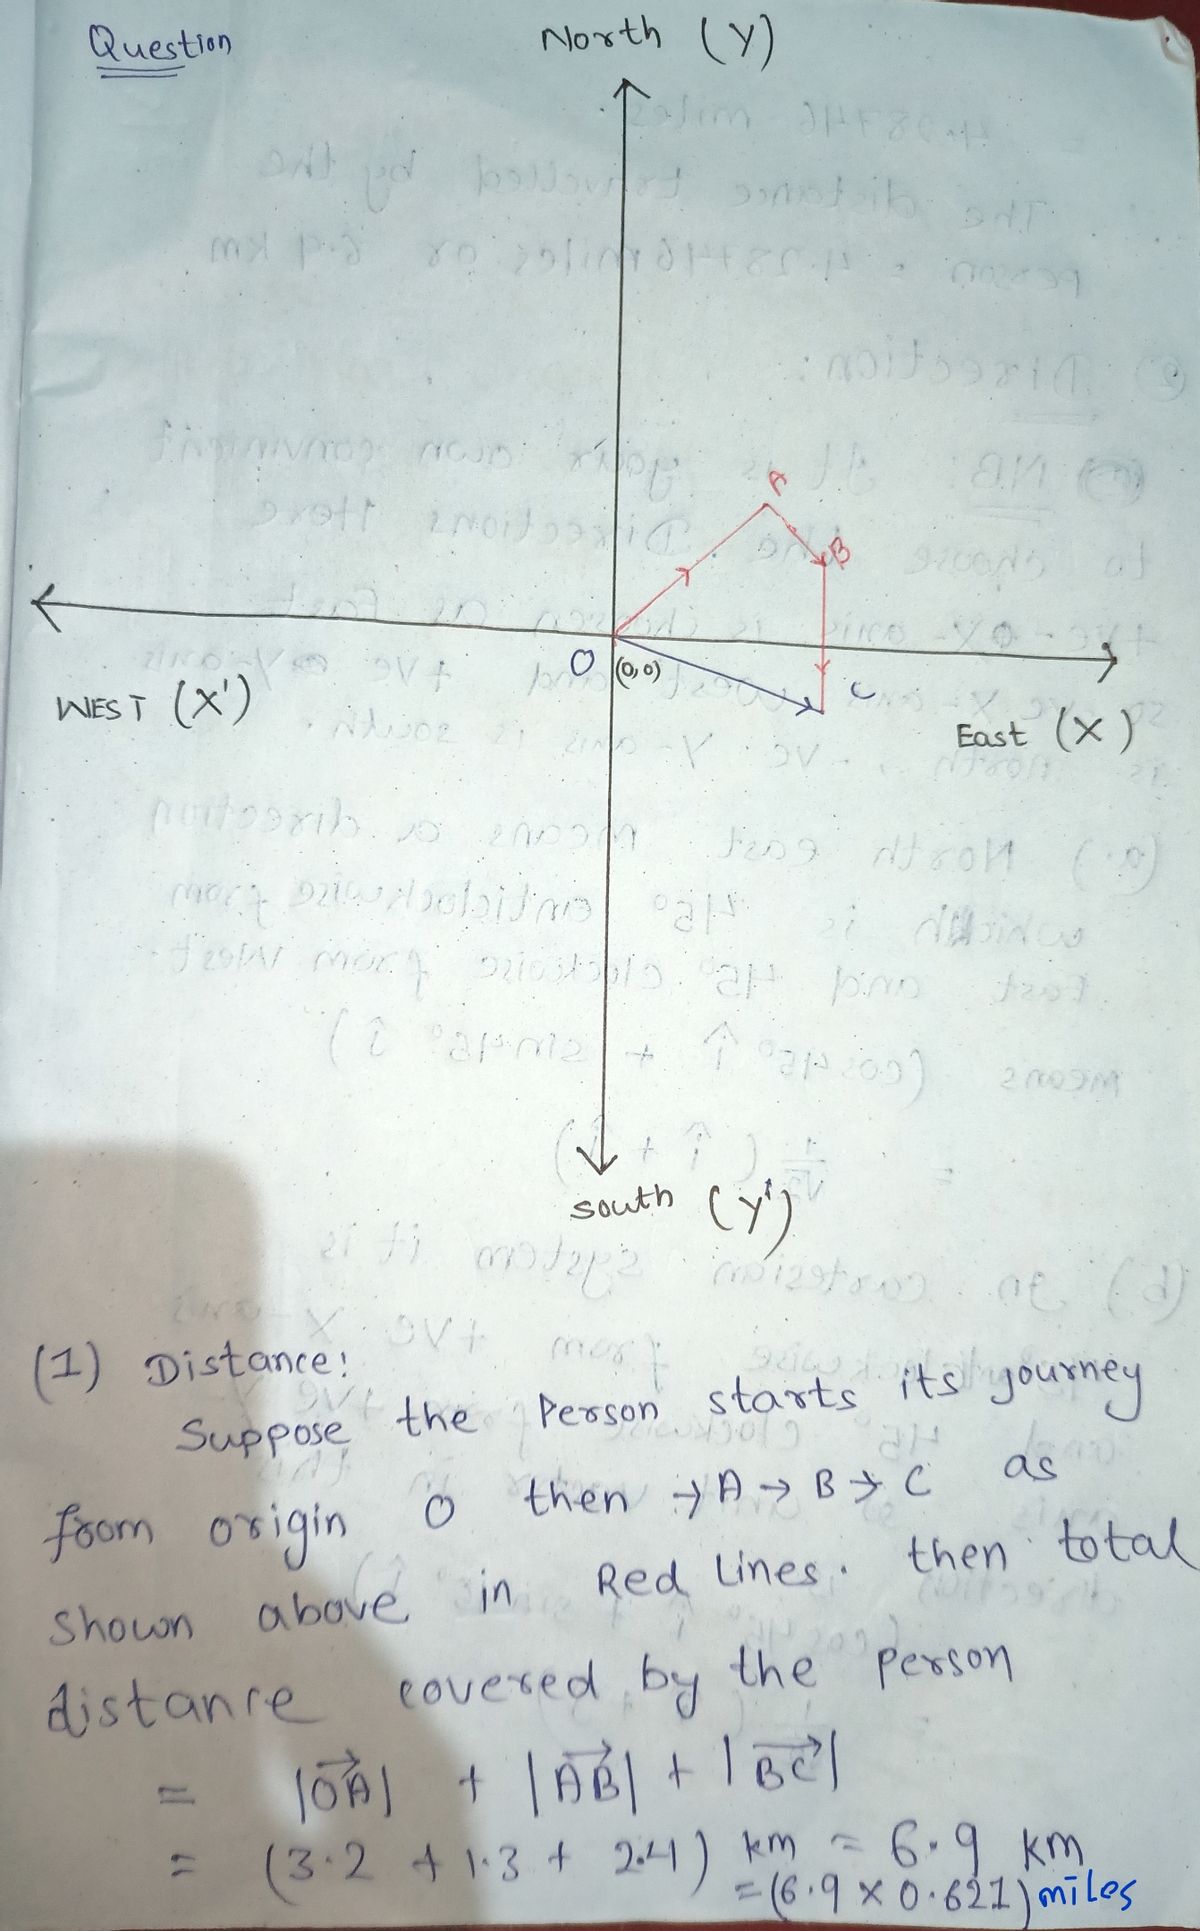 Question
North (Y)
A
B
O
(0,0)
C
WEST (X')
East (X)
South (Y')
(1) Distance:
Suppose the Person starts its journey
from origin O then → A → B → C as
shown above in Red Lines. then total
distance covered by the person
= |OA| + |AB| + |BC|
= (3.2 + 1.3 + 2.4) km = 6.9 km
= (6.9 × 0.621) miles